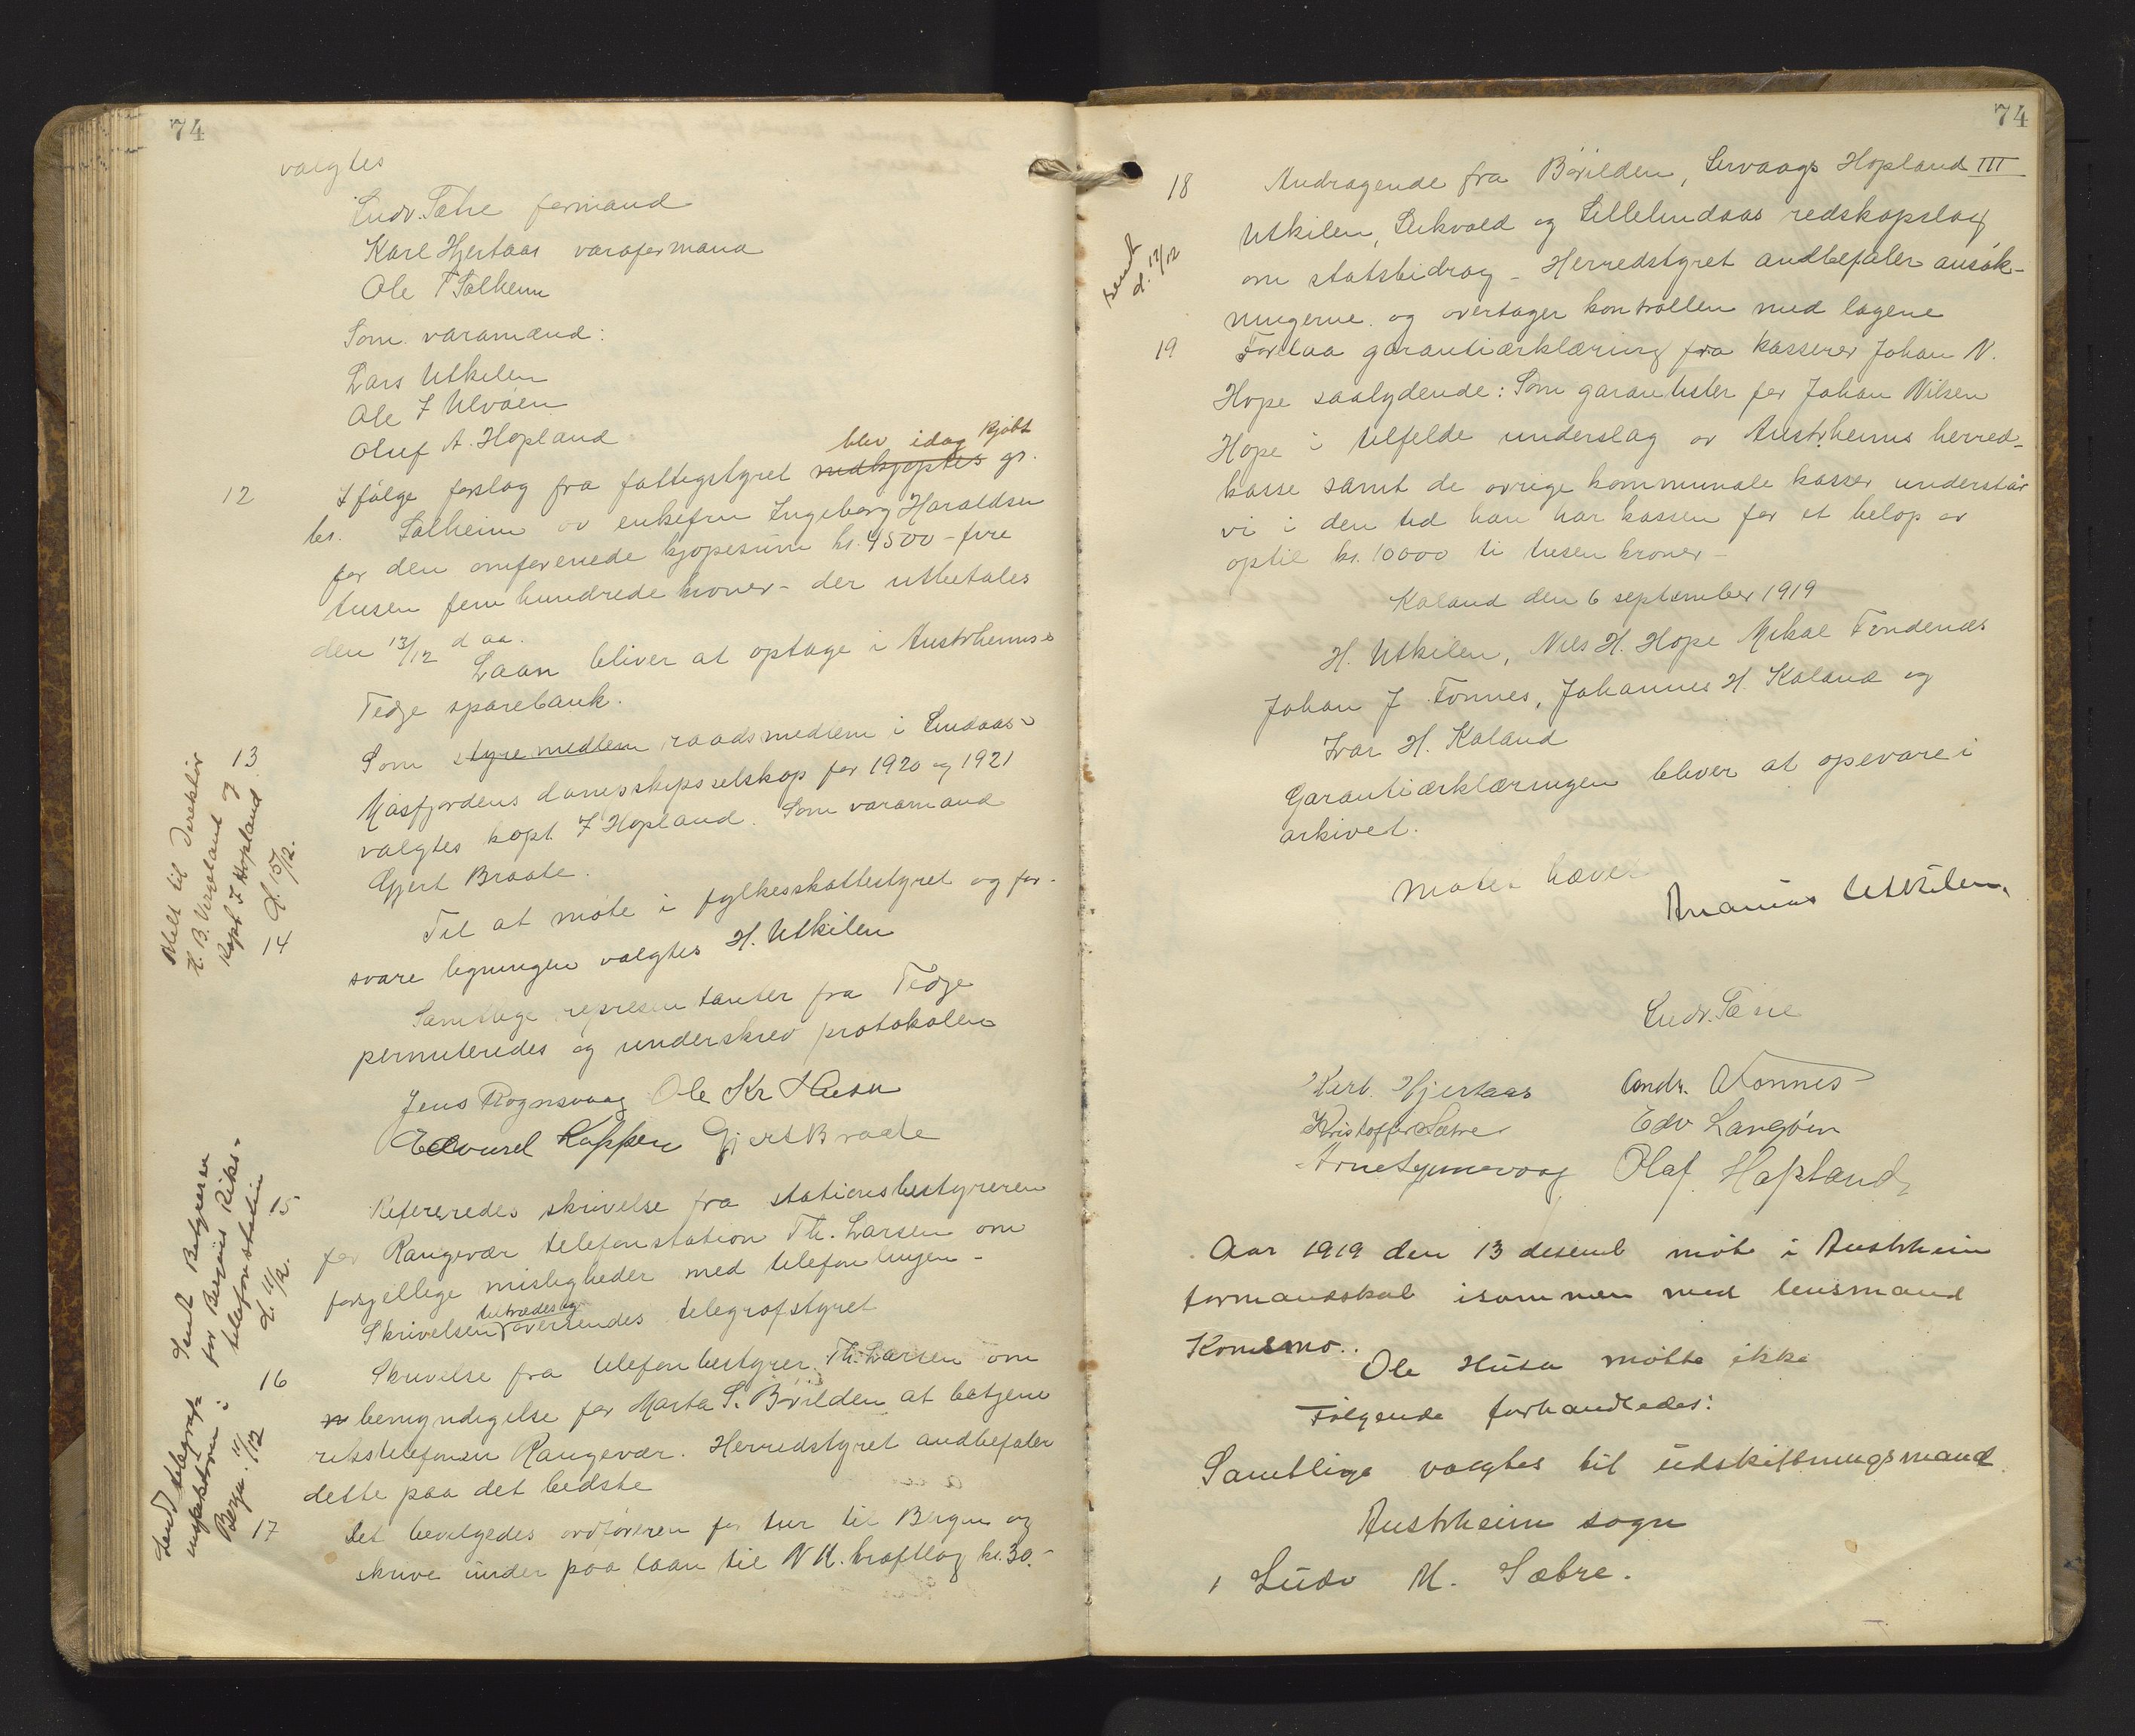 74
valgtes
Ludv. Sætre formand
Karl Hjertaas varaformand
Ole T Solheim
Som varamænd:
Lars Utkilen
Ole I Ulvöen
Oluf A. Hopland
12 Ifölge forslag fra fattigstyret nedkjøptes blev idag kjöbt gr.
br. Solheim av enkefru Ingeborg Haraldsen
for den omforenede kjöpesum kr. 4500 – fire
tusen fem hundrede kroner – der utbetales
den 13/12 d aa.
Laan bliver at optage i Austrheim &
Fedje sparebank.
13 Som styremedlem raadsmedlem i Lindaas –
Masfjordens dampskipsselskap for 1920 og 1921
valgtes kapt I Hopland. Som varamand
Gjert Braate.
Meldt til Direktör
H. B. og
Kapt. I Hopland
d. 15/12.
14 Til at möte i fylkesskattestyret og for-
svare ligningen valgtes H. Utkilen
Samtlige representanter fra Fedje
permiteredes og underskrev protokollen
Jens Rognsvaag Ole Kr Husa
Edvard Koppen Gjert Braate
15 Refereredes skrivelse fra stationsbestyreren
for Rangevær telefonstation Th. Larsen om
forsjellige misligheder med telefonlinjen –
Skrivelsen tiltrædes og oversendes telegrafstyret
Sendt Bestyreren
for Bergens Riks-
telefonstation
d. 11/12.
16 Skrivelse fra telefonbestyrer Th. Larsen om
bemyndigelse for Marta S. Börilden at betjene
rikstelefonen Rangevær. Herredstyret andbefaler
dette paa det bedste
Sendt telegraf-
inspektören i
Bergen 11/12
17 Det bevilgedes ordföreren for tur til Bergen og
skrive under paa laan til N H. kraftlag kr. 30.–
74
18 Andragende fra Börilden, Lervaag, Hopland III
Utkilen, Leikvold og Lillelindaas redskapslag
om statsbidrag – Herredstyret andbefaler ansök-
ningerne og overtager kontrollen med lagene
sendt
d. 17/12
19 Forelaa garantiærklæring fra kasserer Johan N.
Hope saalydende: Som garantister for Johan Nilsen
Hope i tilfelde underslag av Austrheims herred-
kasse samt de övrige kommunale kasser understår
vi i den tid han har kassen for et belöp av
optil kr. 10000 ti tusen kroner –
Kaland den 6 september 1919
H. Utkilen, Nils H. Hope Mikal Fondenes
Johan J Fonnes, Johannes H. Kaland og
Ivar H. Kaland
Garantiærklæringen bliver at opevare i
arkivet.
Mötet hævet
Ananias Utkilen.
Ludv. Sætre
Karl. Hjertaas Andr. Fonnes
Kristoffer Sætre Edv Langöen
Olaf Hopland
Aar 1919 den 13 desemb möte i Austrheim
formandskab isammen med lensmand
Kornesmo..
Ole Husa mötte ikke
Følgende forhandledes:
Samtlige valgtes til udskiftningsmænd
Austrheim sogn
1 Ludv M. Sætre.